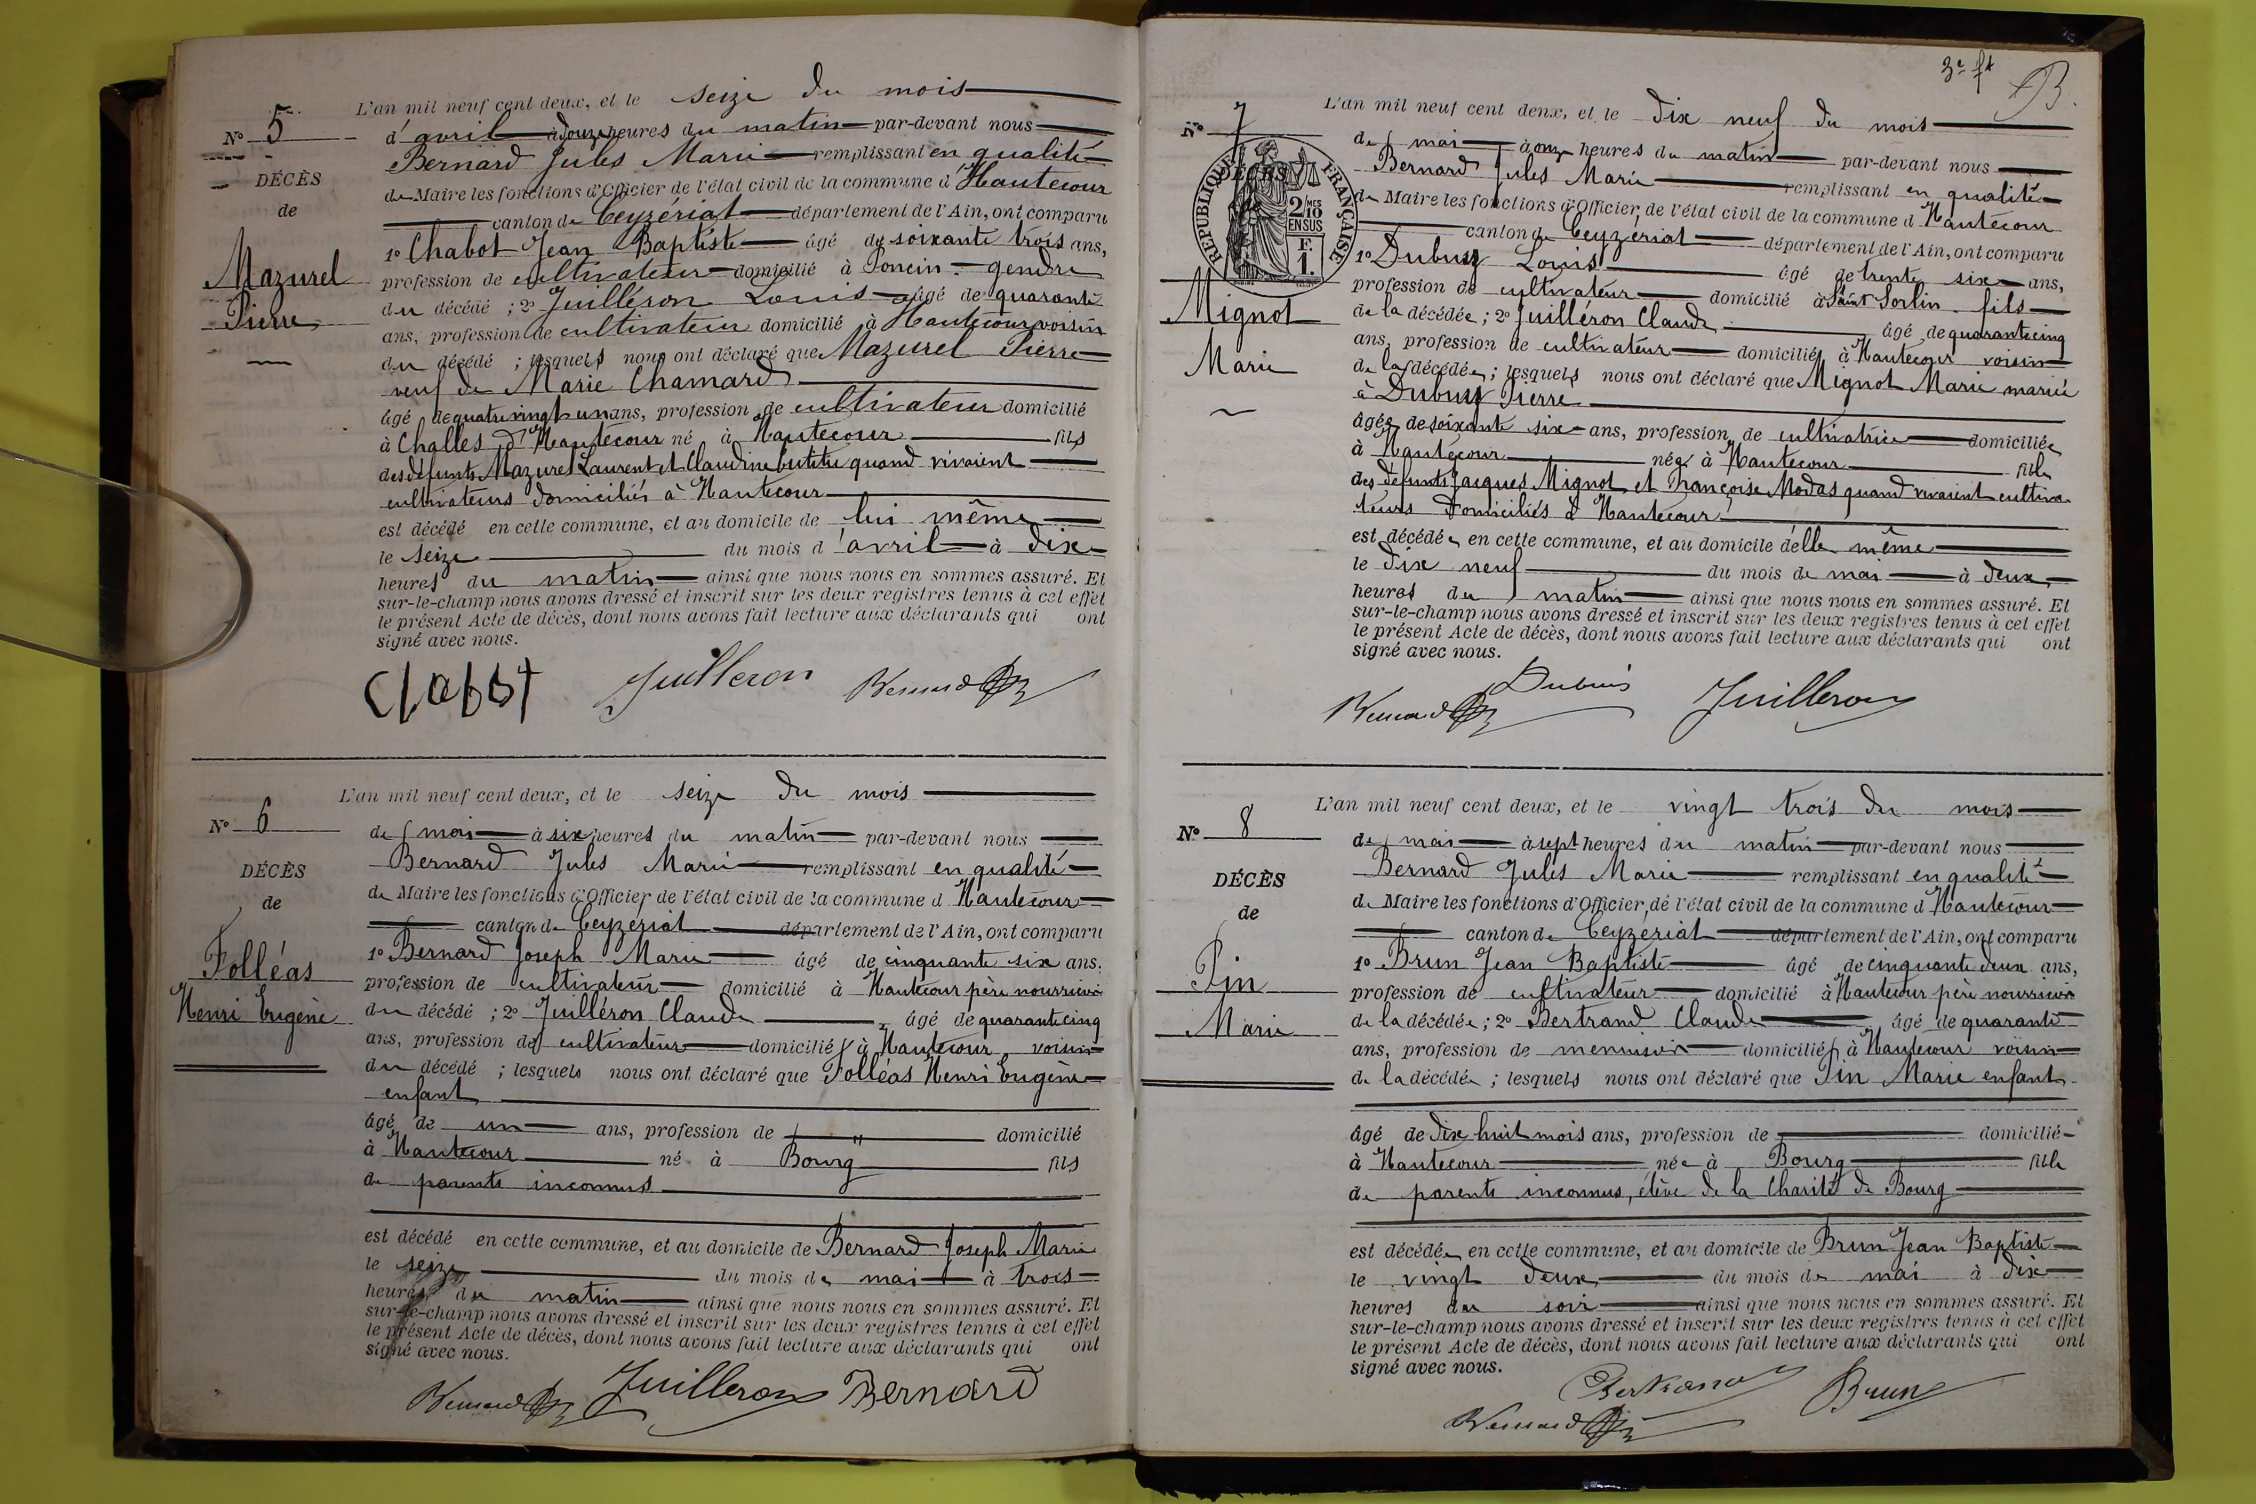 L'an mil neuf cent deux, et le seize du mois
N° 5
d'avril à douze heures du matin par-devant nous
Bernard Jules Marie remplissant en qualité
DÉCÈS
de Maire les fonctions d'Officier de l'état civil de la commune d'Hautecour
de
canton de Ceyzériat département de l'Ain, ont comparu
1° Chabot Jean Baptiste âgé de soixante trois ans,
Mazurel
profession de cultivateur domicilié à Poncin gendre
du décédé ; 2° Juilléron Louis âgé de quarante
Pierre
ans, profession de cultivateur domicilié à Hautecour voisin
du décédé ; lesquels nous ont déclaré que Mazurel Pierre
veuf de Marie Chamard
âgé de quatre vingt un ans, profession de cultivateur domicilié
à Challes d'Hautecour né à Hautecour fils
des défunts Mazurel Laurent et Claudine quand vivaient
cultivateurs domiciliés à Hautecour
est décédé en cette commune, et au domicile de lui même
le seize du mois d'avril à dix
heures du matin ainsi que nous nous en sommes assuré. Et
sur-le-champ nous avons dressé et inscrit sur les deux registres tenus à cet effet
le présent Acte de décès, dont nous avons fait lecture aux déclarants qui ont
signé avec nous.
Chabot Juilleron Bernard
L'an mil neuf cent deux, et le seize du mois
N° 6
de mai à six heures du matin par-devant nous
Bernard Jules Marie remplissant en qualité
DÉCÈS
de Maire les fonctions d'Officier de l'état civil de la commune d Hautecour
de
canton de Ceyzériat département de l'Ain, ont comparu
1° Bernard Joseph Marie âgé de cinquante six ans,
Folléas
profession de cultivateur domicilié à Hautecour père nourricier
Henri Eugène
du décédé ; 2° Juilléron Claude âgé de quarante cinq
ans, profession de cultivateur domicilié à Hautecour voisin
du décédé ; lesquels nous ont déclaré que Folléas Henri Eugène
enfant
âgé de un ans, profession de " domicilié
à Hautecour né à Bourg fils
de parents inconnus
est décédé en cette commune, et au domicile de Bernard Joseph Marie
le seize du mois de mai à trois
heures du matin ainsi que nous nous en sommes assuré. Et
sur-le-champ nous avons dressé et inscrit sur les deux registres tenus à cet effet
le présent Acte de décès, dont nous avons fait lecture aux déclarants qui ont
signé avec nous.
Bernard Juilleron Bernard
3e ft B.
L'an mil neuf cent deux, et le dix neuf du mois
N° 7
de mai à onze heures du matin par-devant nous
Bernard Jules Marie remplissant en qualité
DÉCÈS
REPUBLIQUE FRANÇAISE
2/10 MES
EN SUS
F.
1.
de Maire les fonctions d'Officier de l'état civil de la commune d Hautecour
canton de Ceyzériat département de l'Ain, ont comparu
1° Dubuis Louis âgé de trente six ans,
profession de cultivateur domicilié à Saint Sorlin fils
Mignot
de la décédée ; 2° Juilléron Claude âgé de quarante cinq
ans, profession de cultivateur domicilié à Hautecour voisin
Marie
de la décédée ; lesquels nous ont déclaré que Mignot Marie mariée
à Dubuis Pierre
âgée de soixante six ans, profession de cultivatrice domiciliée
à Hautecour née à Hautecour fille
des défunts Jacques Mignot et Françoise Modas quand vivaient cultiva-
teurs domiciliés à Hautecour
est décédée en cette commune, et au domicile d'elle même
le dix neuf du mois de mai à deux
heures du matin ainsi que nous nous en sommes assuré. Et
sur-le-champ nous avons dressé et inscrit sur les deux registres tenus à cet effet
le présent Acte de décès, dont nous avons fait lecture aux déclarants qui ont
signé avec nous.
Bernard Dubuis Juilleron
L'an mil neuf cent deux, et le vingt trois du mois
N° 8
de mai à sept heures du matin par-devant nous
Bernard Jules Marie remplissant en qualité
DÉCÈS
de Maire les fonctions d'Officier de l'état civil de la commune d Hautecour
de
canton de Ceyzériat département de l'Ain, ont comparu
1° Brun Jean Baptiste âgé de cinquante deux ans,
Pin
profession de cultivateur domicilié à Hautecour père nourricier
Marie
de la décédée ; 2° Bertrand Claude âgé de quarante
ans, profession de menuisier domicilié à Hautecour voisin
de la décédée ; lesquels nous ont déclaré que Pin Marie enfant
âgé de dix huit mois ans, profession de domicilié
à Hautecour née à Bourg fille
de parents inconnus, élève de la Charité de Bourg
est décédée en cette commune, et au domicile de Brun Jean Baptiste
le vingt deux du mois de mai à dix
heures du soir ainsi que nous nous en sommes assuré. Et
sur-le-champ nous avons dressé et inscrit sur les deux registres tenus à cet effet
le présent Acte de décès, dont nous avons fait lecture aux déclarants qui ont
signé avec nous.
Bertrand Brun
Bernard